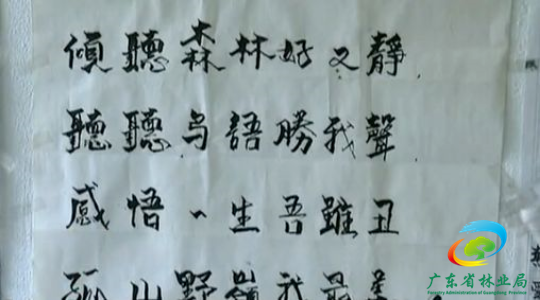 傾聽森林好又靜
聽聽鸟語勝我聲
感悟一生吾雖丑
孤山野嶺我最美
广东省林业局
Forestry Administration of Guangdong Province